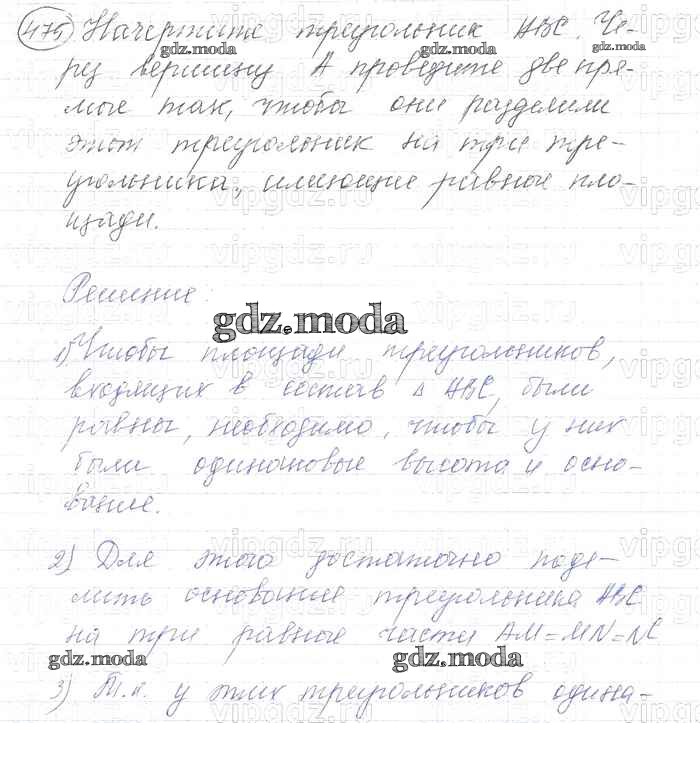 475) Начертите треугольник ABC. Че-
рез вершину A проведите две пря-
мые так, чтобы они разделили
этот треугольник на три тре-
угольника, имеющие равные пло-
щади.
Решение:
1) Чтобы площади треугольников,
входящих в состав Δ ABC, были
равны, необходимо, чтобы у них
были одинаковые высота и осно-
вание.
2) Для этого достаточно поде-
лить основание треугольника ABC
на три равные части AM=MN=NC
3) Т.к. у этих треугольников одина-
gdz.moda
gdz.moda
gdz.moda
gdz.moda
gdz.moda
gdz.moda
vipgdz.ru